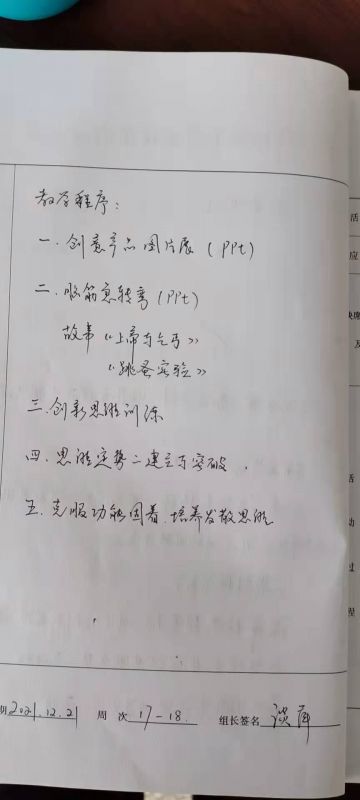 教学程序：
一.创意产品图片展（PPt）
二.脑筋急转弯(PPt)
故事《上帝与乞丐》
《跳蚤实验》
三.创新思维训练
四.思维定势之建立与突破.
五.克服功能固着.培养发散思维
期2021.12.21 周 次 17-18. 组长签名 谈
活
应
及
活
动
过
程